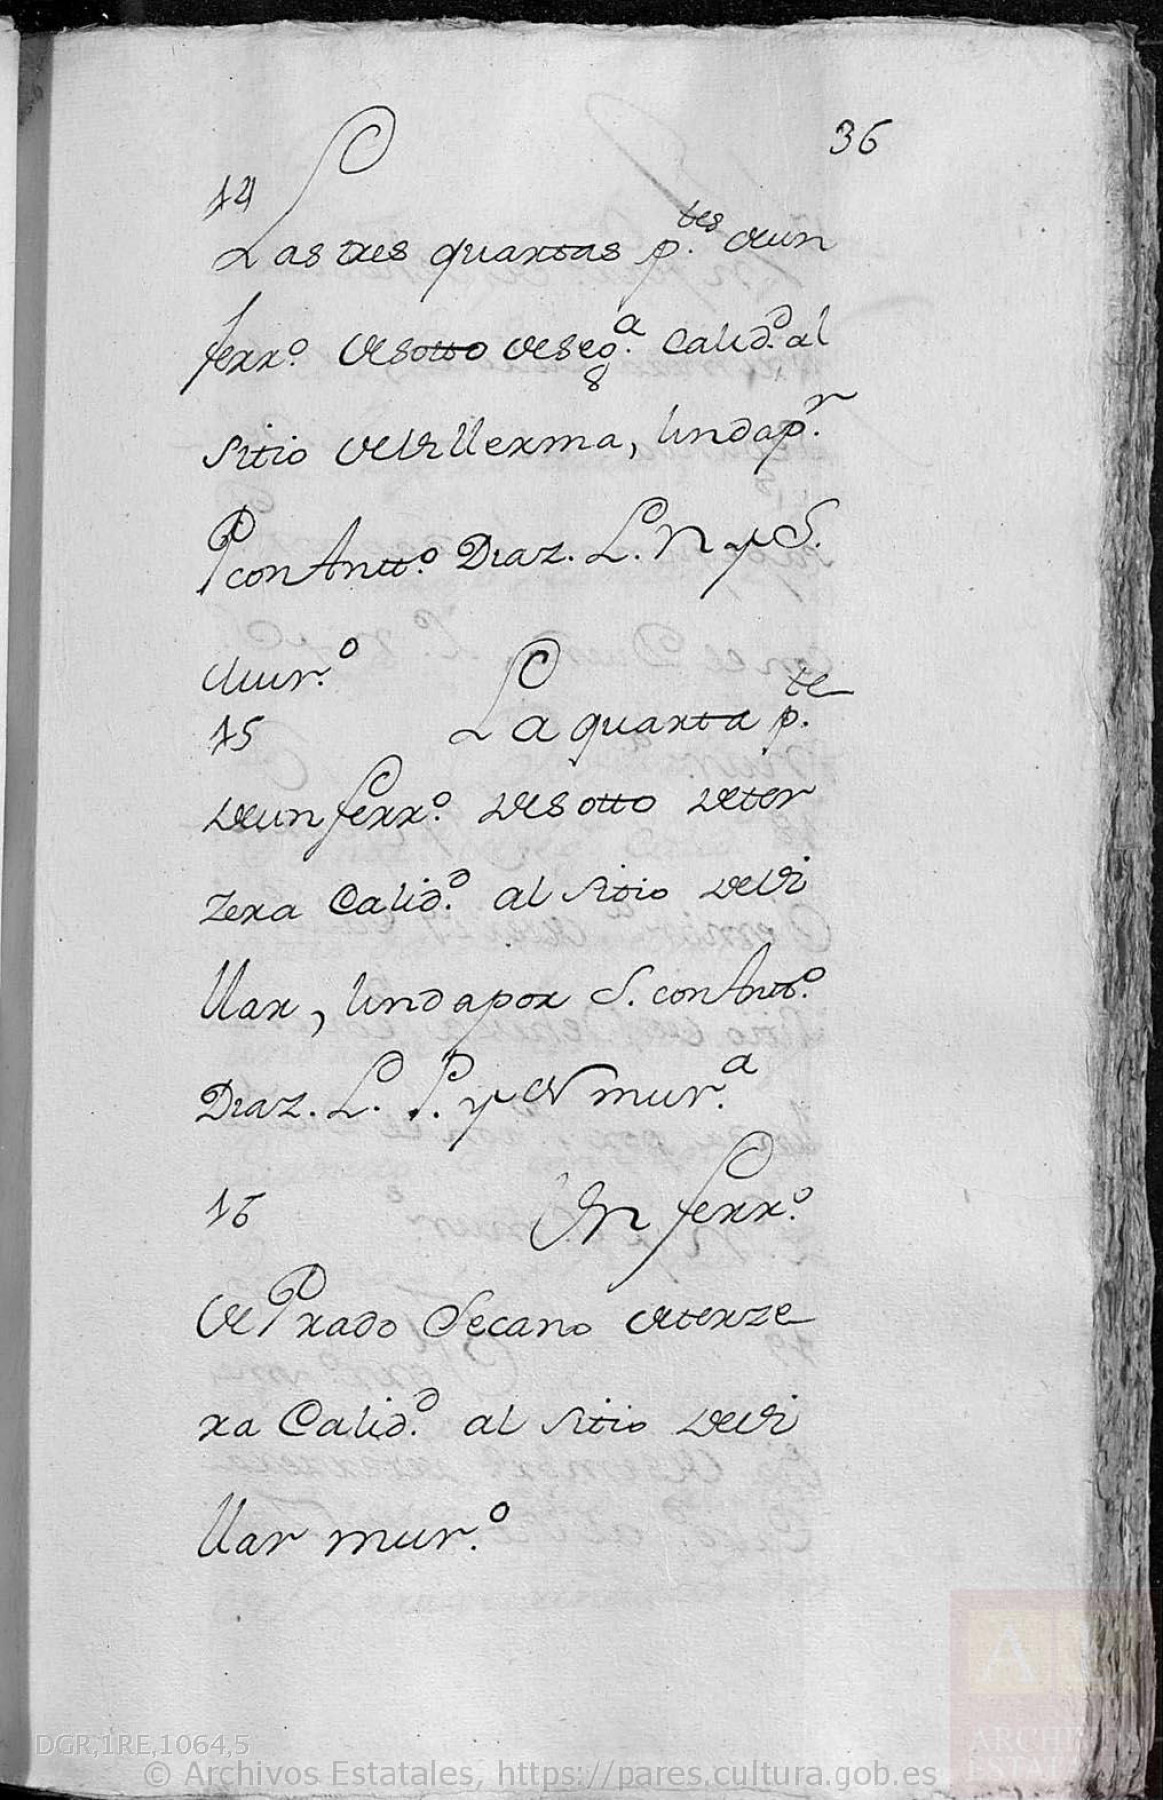 36
14
Las tres quartas p.tes deun
ferr.o desotto deseg.a Calid.d al
sitio deVillerma, linda p.r
P con Antt.o Diaz. L. N y S.
Mur.o
15 La quarta p.te
deun ferr.o desotto deter
zera Calid.d al sitio deVi
llar, linda por S. con Antt.o
Diaz. L. P. y N mur.a
16 Un ferr.o
de Prado Secano deterze
ra Calid.d al sitio deVi
llar mur.o
DGR,1RE,1064,5
© Archivos Estatales, https://pares.cultura.gob.es